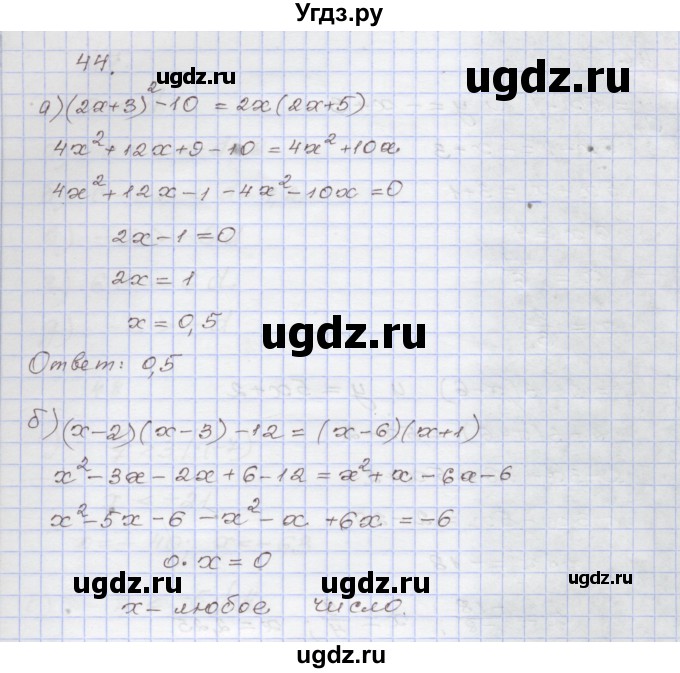 Угдз.ру
44.
ugdz.ru ugdz.ru
а) (2x+3)²-10 = 2x(2x+5)
4x²+12x+9-10=4x²+10x
4x²+12x-1-4x²-10x=0
2x-1=0
2x=1
x=0,5
ugdz.ru
Ответ: 0,5
б) (x-2)(x-3)-12=(x-6)(x+1)
x²-3x-2x+6-12=x²+x-6x-6
x²-5x-6-x²-x+6x=-6
0·x=0
ugdz.ru ugdz.ru
x-любое число.
ugdz.ru